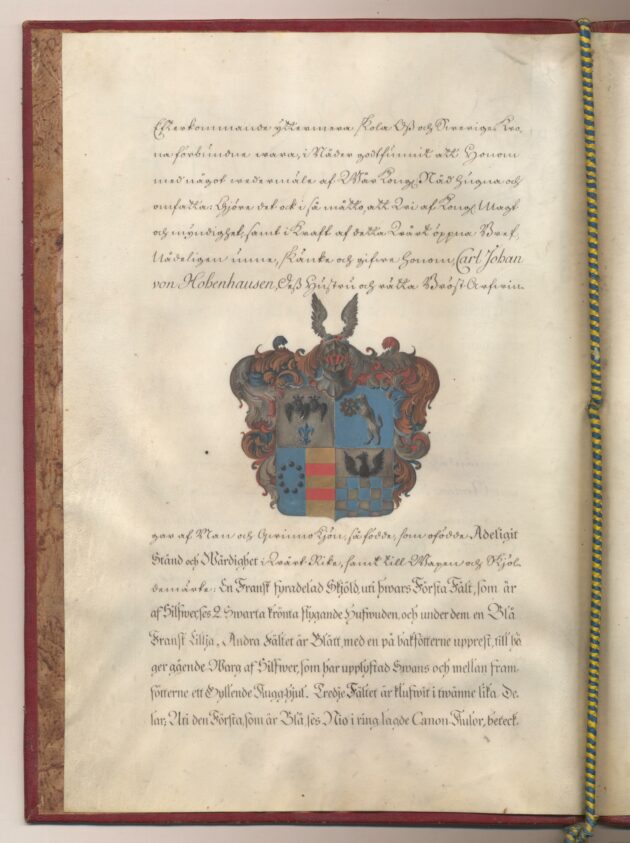 Efterkommande yttermera skola Oß och Sweriges Kro-
na förbundne wara, i Nåder godtfunnit att Honom
med något wedermäle af Wår Kongl. Nåd hugna och
omfatta. Giöre det ock i så måtto, att Wi af Kongl. Magt
och myndighet, samt i Kraft af detta Wårt öppna Bref,
Nådeligen unne, skänke och gifwe honom, Carl Johan
von Hohenhausen, Deß Hustru och rätta Bröst-Arfwin-
gar af Man och Qwinno Kjön, så födde, som ofödde Adeligit
Stånd och Wärdighet i Wårt Rike, samt till Wapen och Skjöl-
demärke: En Fransk fyradelad Skjöld, uti hwars Första Fält, som är
af Silfwer, ses 2. Swarta krönta flygande Hufwuden, och under dem en Blå
Fransk Lillja. Andra Fältet är Blått, med en på bakfötterne upprest, till hö
ger gående Warg af Silfwer, som har upplyftad Swans och mellan fram-
fötterne ett Gyllende Kugghjul. Tredje Fältet är klufwit i twänne lika De-
lar; Uti den Första, som är Blå, ses Nio i ring lagde Canon Kulor, beteck-